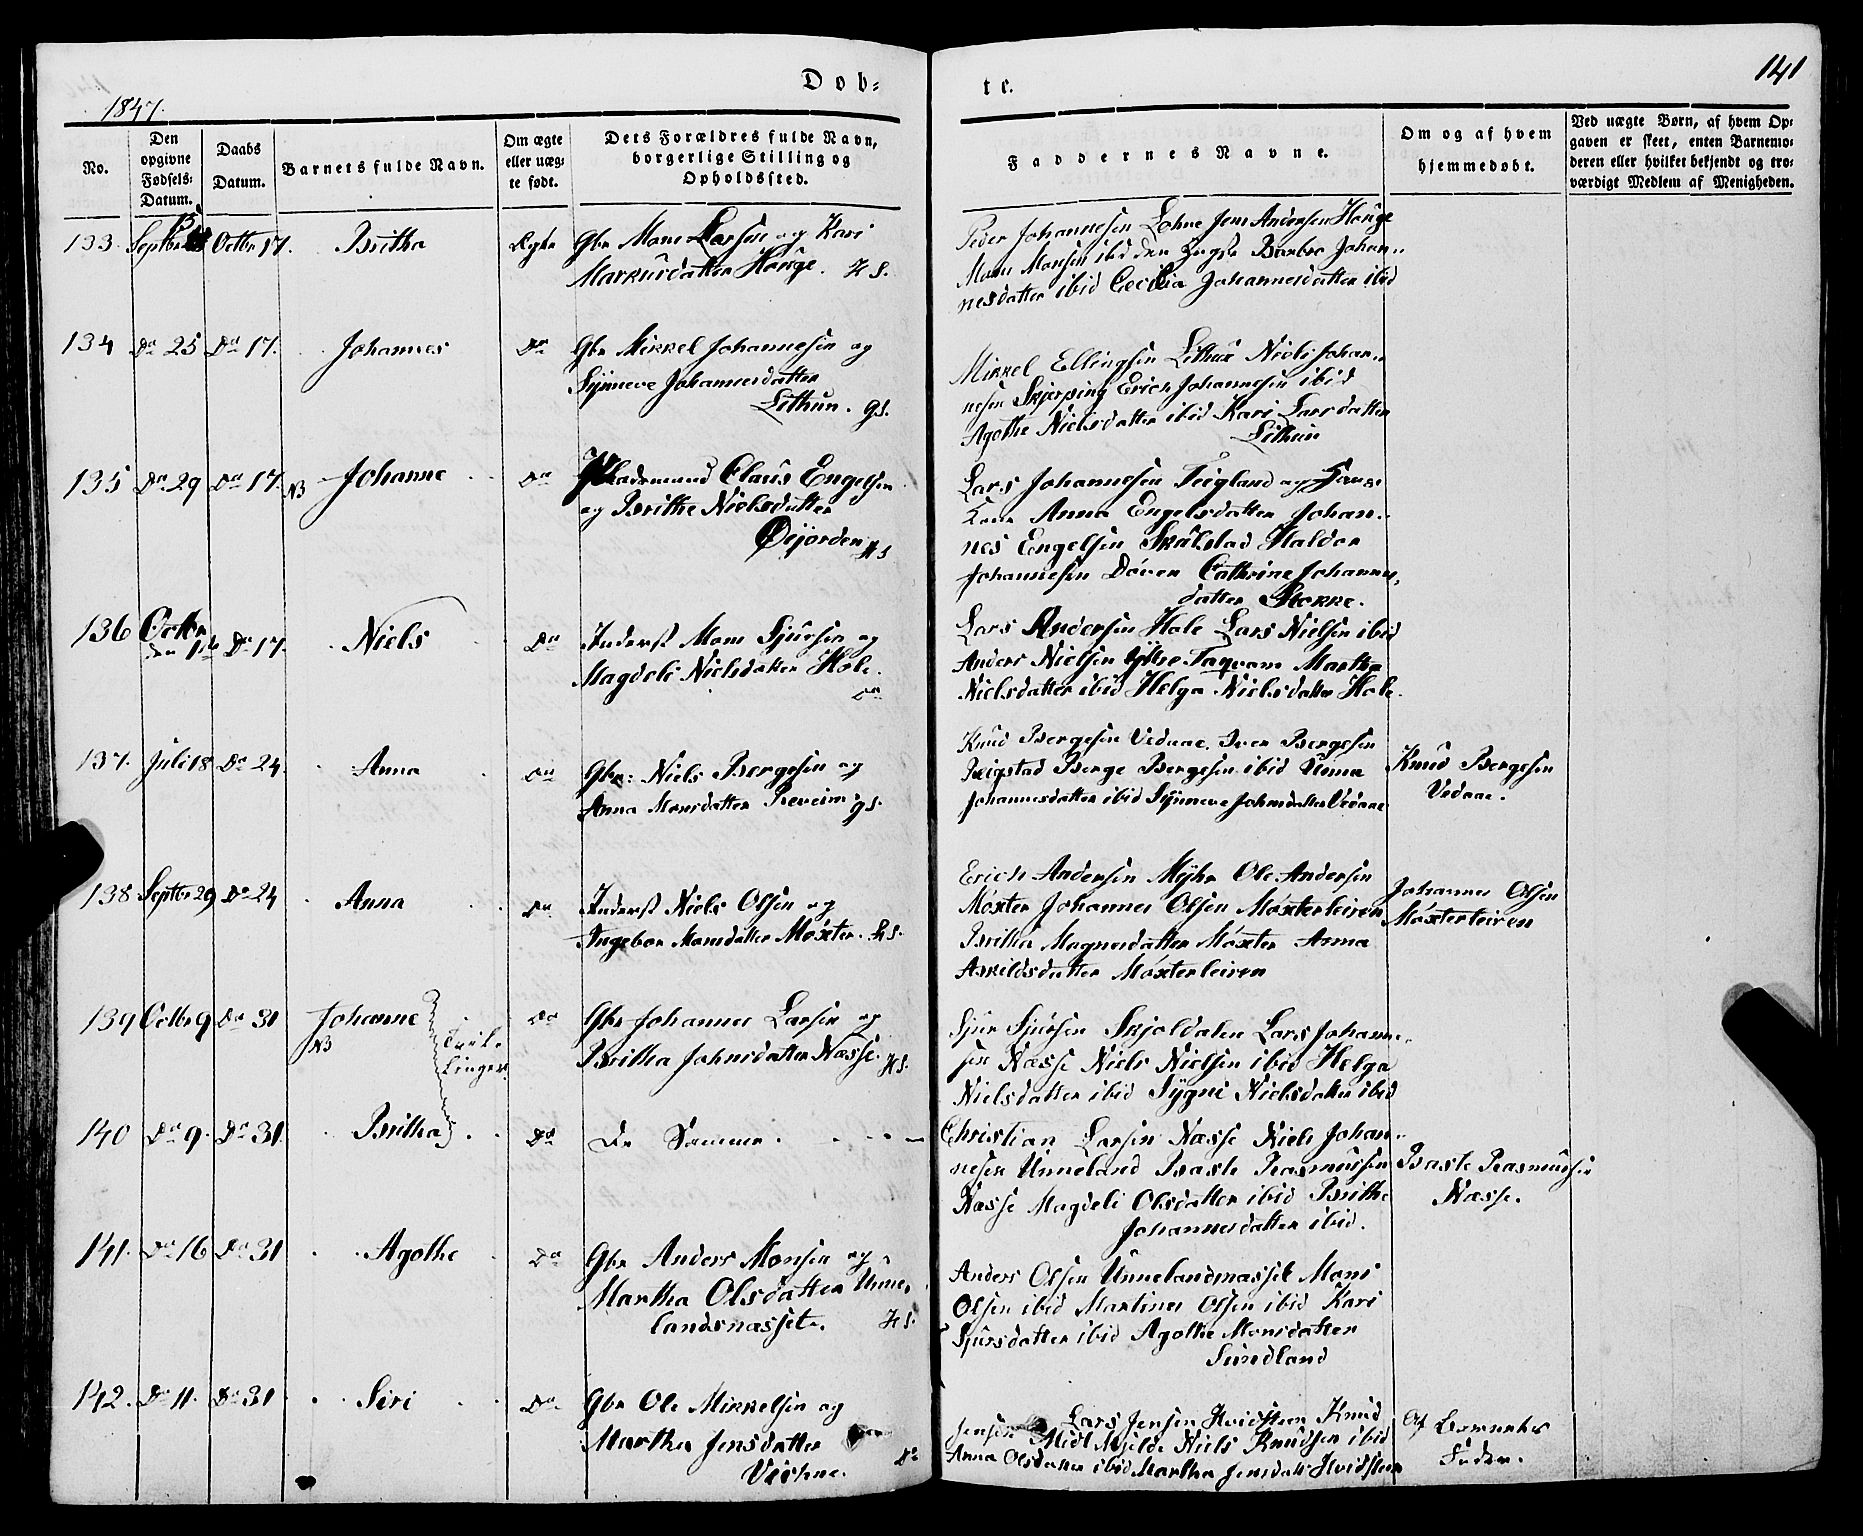 Dob=
te.
141
1847.
No.
Den opgivne Fødsels-Datum.
Daabs Datum.
Barnets fulde Navn.
Om ægte eller uæg-te født.
Dets Forældres fulde Navn, borgerlige Stilling og Opholdssted.
Faddernes Navne.
Om og af hvem hjemmedøbt.
Ved uægte Børn, af hvem Op-
gaven er skeet, enten Barnemo-
deren eller hvilket bekjendt og tro-
værdigt Medlem af Menigheden.
133. Septbr Octbr 17. Britha Ægte Gbr Mons Larsen og Kari
Markusdatter Houge. H S.
Peder Johannesen Lohne Jens Andersen Houge
Mons Monsen ibid den Barbro Johan-
nesdatter ibid Cecilia Johannesdatter ibid
134 Do 25 Do 17. Johannes Do Gbr Mikkel Johannesen og
Synneve Johannesdatter
Lithun. g S.
Mikkel Ellingsen Lithun Niels Johan-
nesen Skjerping Erich Johannesen ibid
Agathe Nielsdatter ibid Kari Larsdatter
Lithun
135 Do 29 Do 17. NB Johanne Do Pladsmand Claus Engelsen
og Brithe Nielsdatter
Øijorden H S
Lars Johannesen Teigland og Hans
Kone Anna Engelsdatter Johan-
nes Engelsen Skulstad Haldor
Johannesen Døven Cathrine Johannes-
datter Storke.
136 Octbr Do 17. Niels Do Inderst Mons Sjursen og
Magdeli Nielsdatter Hole.
Do
Lars Andersen Hole Lars Nielsen ibid
Anders Nielsen Ytre Taqvam Martha
Nielsdatter ibid Helga Nielsdatter Hole.
137. Juli 18 Do 24. Anna Do Gbr: Niels Bergesen og
Anna Monsdatter Reveim g S.
Knud Bergesen Vedaae. Iver Bergesen
Reigstad Berge Bergesen ibid Unna
Johannesdatter ibid Synneve Johansdatter Vedaae
Knud Bergesen
Vedaae.
138 Septbr 29 Do 24 Anna Do Inderst Niels Olsen og
Ingebor Monsdatter Møxter. H S.
Erich Andersen Myhr Ole Andersen
Møxter Johannes Olsen Møxterleiren
Britha Magnesdatter Møxter Anna
Askildsdatter Møxterleiren
Johannes Olsen
Møxterleiren
139 Octbr 9 Do 31 Johanne NB Tvil-
linger. Do Gbr Johannes Larsen og
Britha Johnsdatter Næsse. H S.
Sjur Sjursen Skjoldalen Lars Johanne-
sen Næsse Niels Nielsen ibid Helga
Nielsdatter ibid Sygni Nielsdatter ibid
140 Do 9. Do 31. Britha Do De Samme.
Christian Larsen Næsse Niels Johan-
nesen Unneland Baste Rasmussen
Næsse Magdeli Olsdatter ibid Brithe
Johannesdatter ibid.
Baste Rasmussen
Næsse.
141. Do 16 Do 31 Agathe Do Gbr Anders Monsen og
Martha Olsdatter Unne-
landsnæsset. H S.
Anders Olsen Unnelandnæsset Mons
Olsen ibid Martines Olsen ibid Kari
Sjursdatter ibid Agathe Monsdatter
Sundland
142. Do 11. Do 31 Siri Do. Gbr Ole Mikkelsen og
Martha Jensdatter
Vichne. Do
Lars Jensen Hvidsteen Knud
Jensen Midt Mjelde Niels Knudsen ibid
Anna Olsdatter ibid Martha Jensdatt Hvidsteen
Af Barnets
Fader.